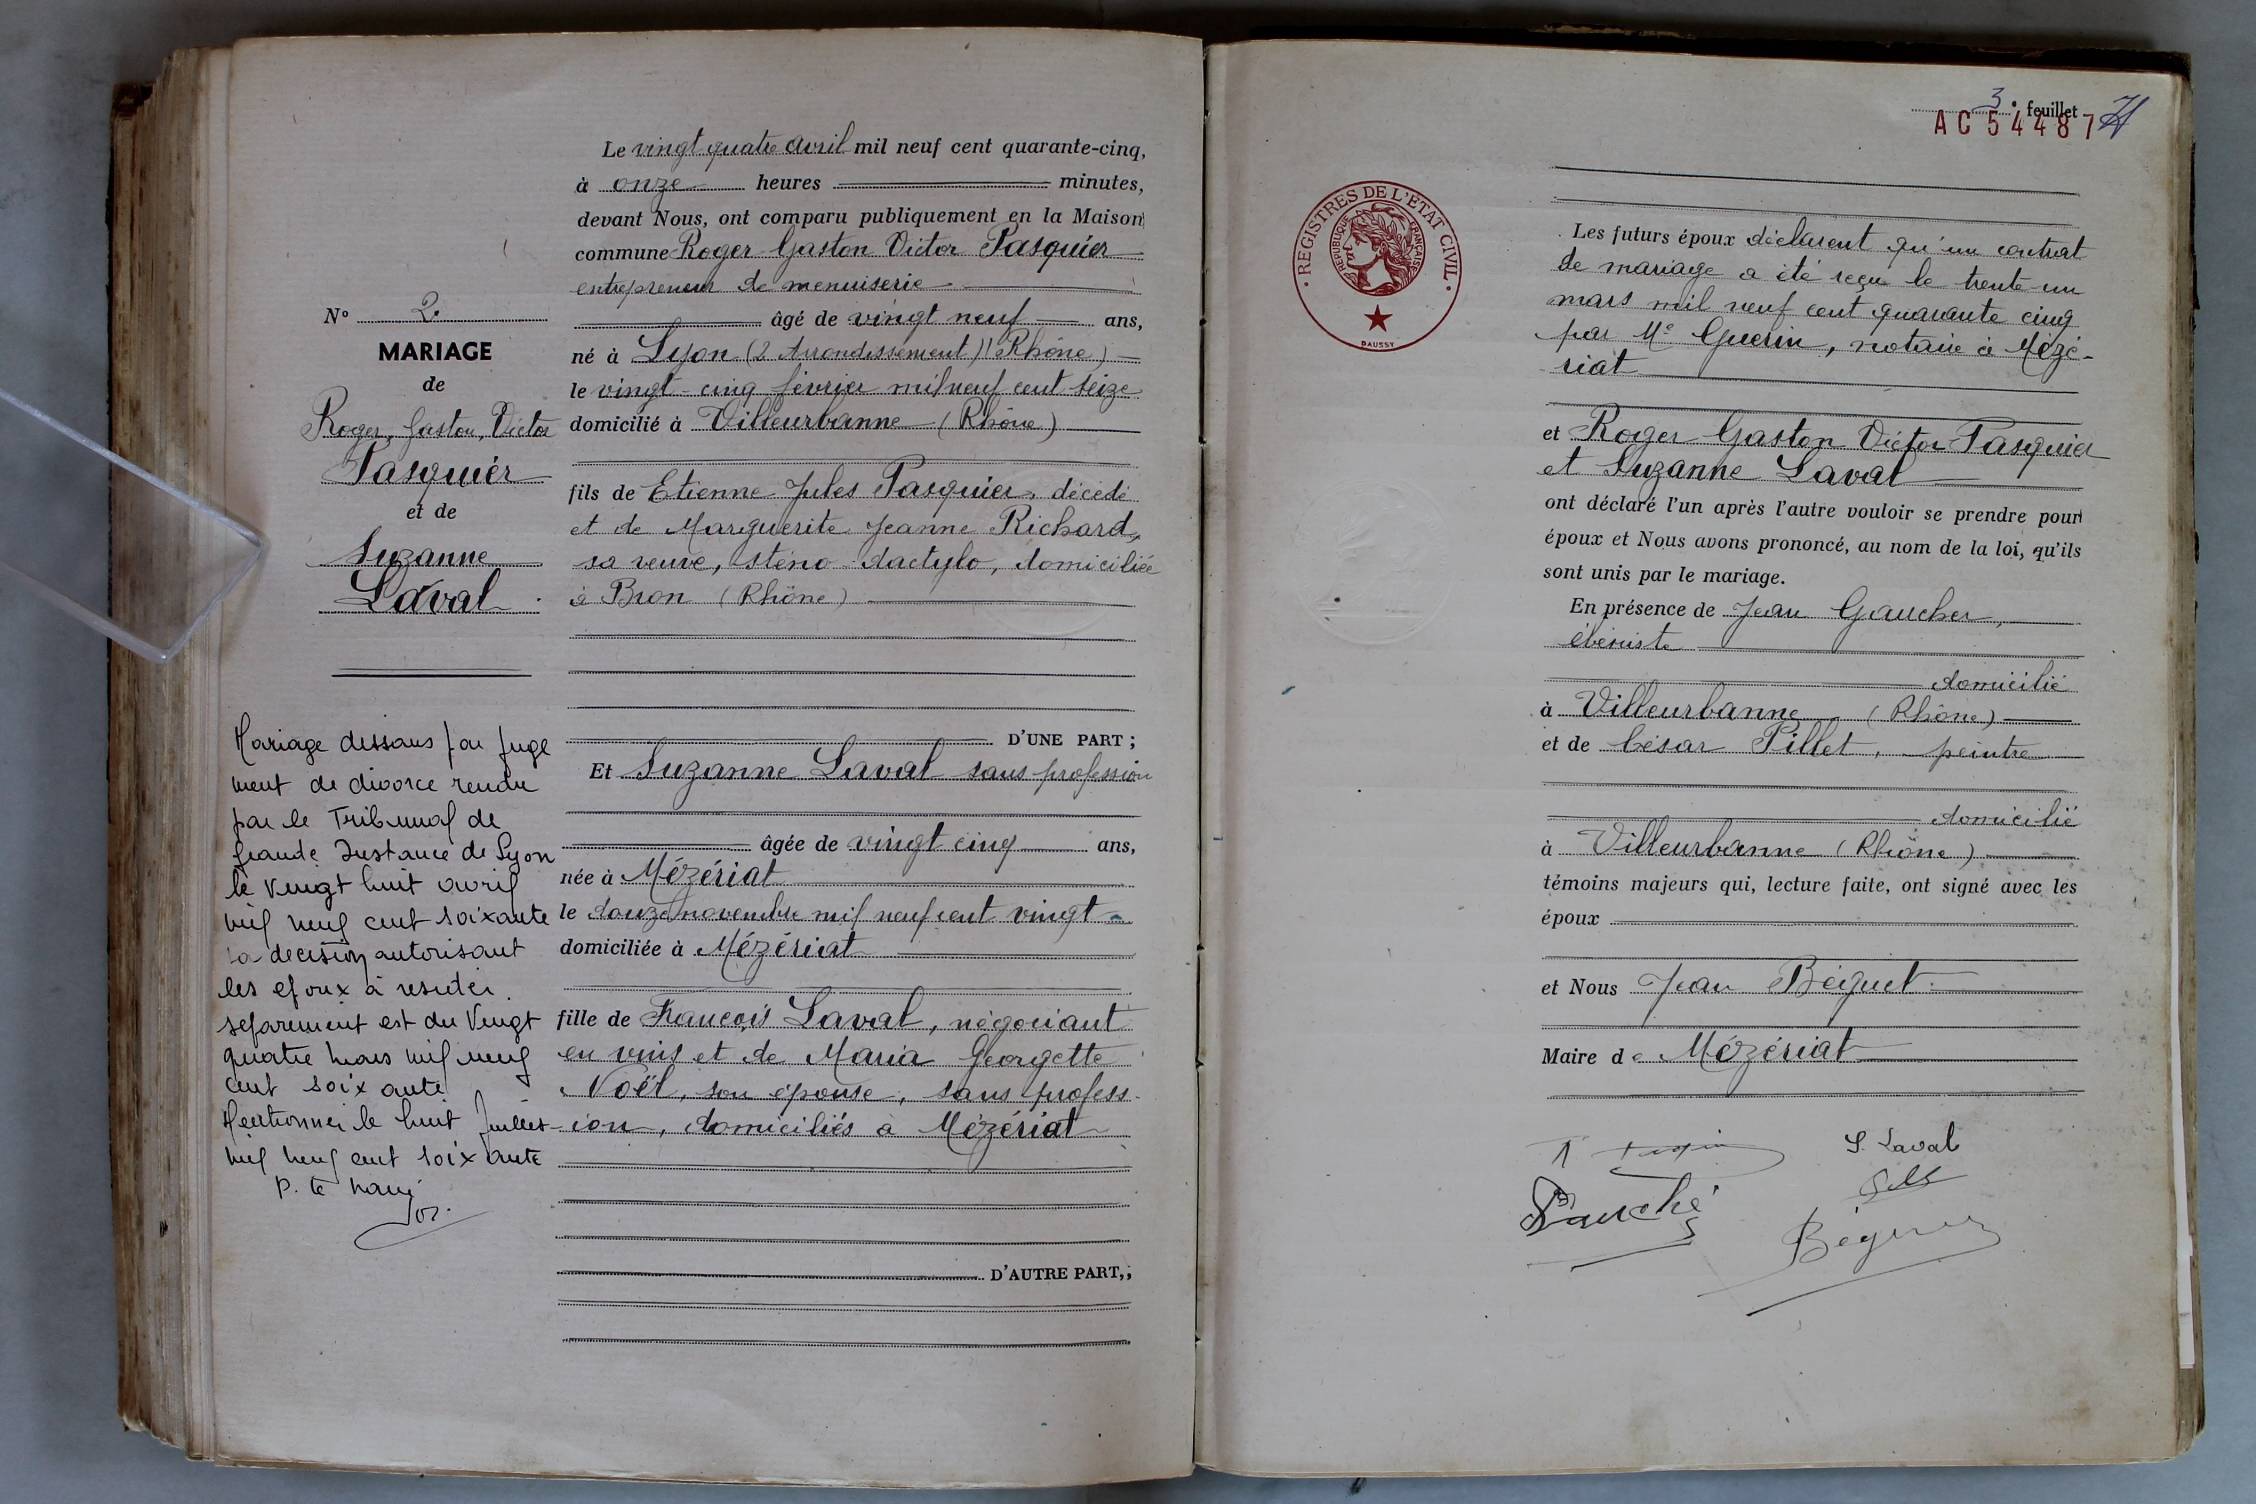 N° 2.
MARIAGE
de
Roger, Gaston, Victor
Pasquier
et de
Suzanne
Laval
Mariage dissous par juge
ment de divorce rendu
par le Tribunal de
Grande Instance de Lyon
le vingt huit avril
mil neuf cent soixante
la decision autorisant
les epoux à resider
separement est du Vingt
quatre mars mil neuf
cent soixante
Mentionné le huit Juillet
mil neuf cent soixante
Le vingt quatre avril mil neuf cent quarante-cinq,
à onze heures minutes,
devant Nous, ont comparu publiquement en la Maison
commune Roger Gaston Victor Pasquier
entrepreneur de menuiserie
âgé de vingt neuf ans,
né à Lyon (2 Arrondissement) (Rhône)
le vingt-cinq février mil neuf cent seize
domicilié à Villeurbanne (Rhône)
fils de Etienne Jules Pasquier, décédé
et de Marguerite Jeanne Richard,
sa veuve, sténo-dactylo, domiciliée
à Bron (Rhône)
D'UNE PART ;
Et Suzanne Laval sans profession
âgée de vingt cinq ans,
née à Mézériat
le douze novembre mil neuf cent vingt
domiciliée à Mézériat
fille de François Laval, négociant
en vins et de Maria Georgette
Noël, son épouse, sans profess-
ion, domiciliés à Mézériat
D'AUTRE PART,;
3e feuillet
AC 54487
REGISTRES DE L'ÉTAT CIVIL
REPUBLIQUE FRANÇAISE
DAUSSY
Les futurs époux déclarent qu'un contrat
de mariage a été reçu le trente-un
mars mil neuf cent quarante cinq
par Me Guerin, notaire à Mézé-
riat
et Roger Gaston Victor Pasquier
et Suzanne Laval
ont déclaré l'un après l'autre vouloir se prendre pour
époux et Nous avons prononcé, au nom de la loi, qu'ils
sont unis par le mariage.
En présence de Jean Gaucher,
ébéniste
domicilié
à Villeurbanne (Rhône)
et de César Pillet, peintre
domicilié
à Villeurbanne (Rhône)
témoins majeurs qui, lecture faite, ont signé avec les
époux
et Nous Jean Béguet
Maire de Mézériat
S. Laval